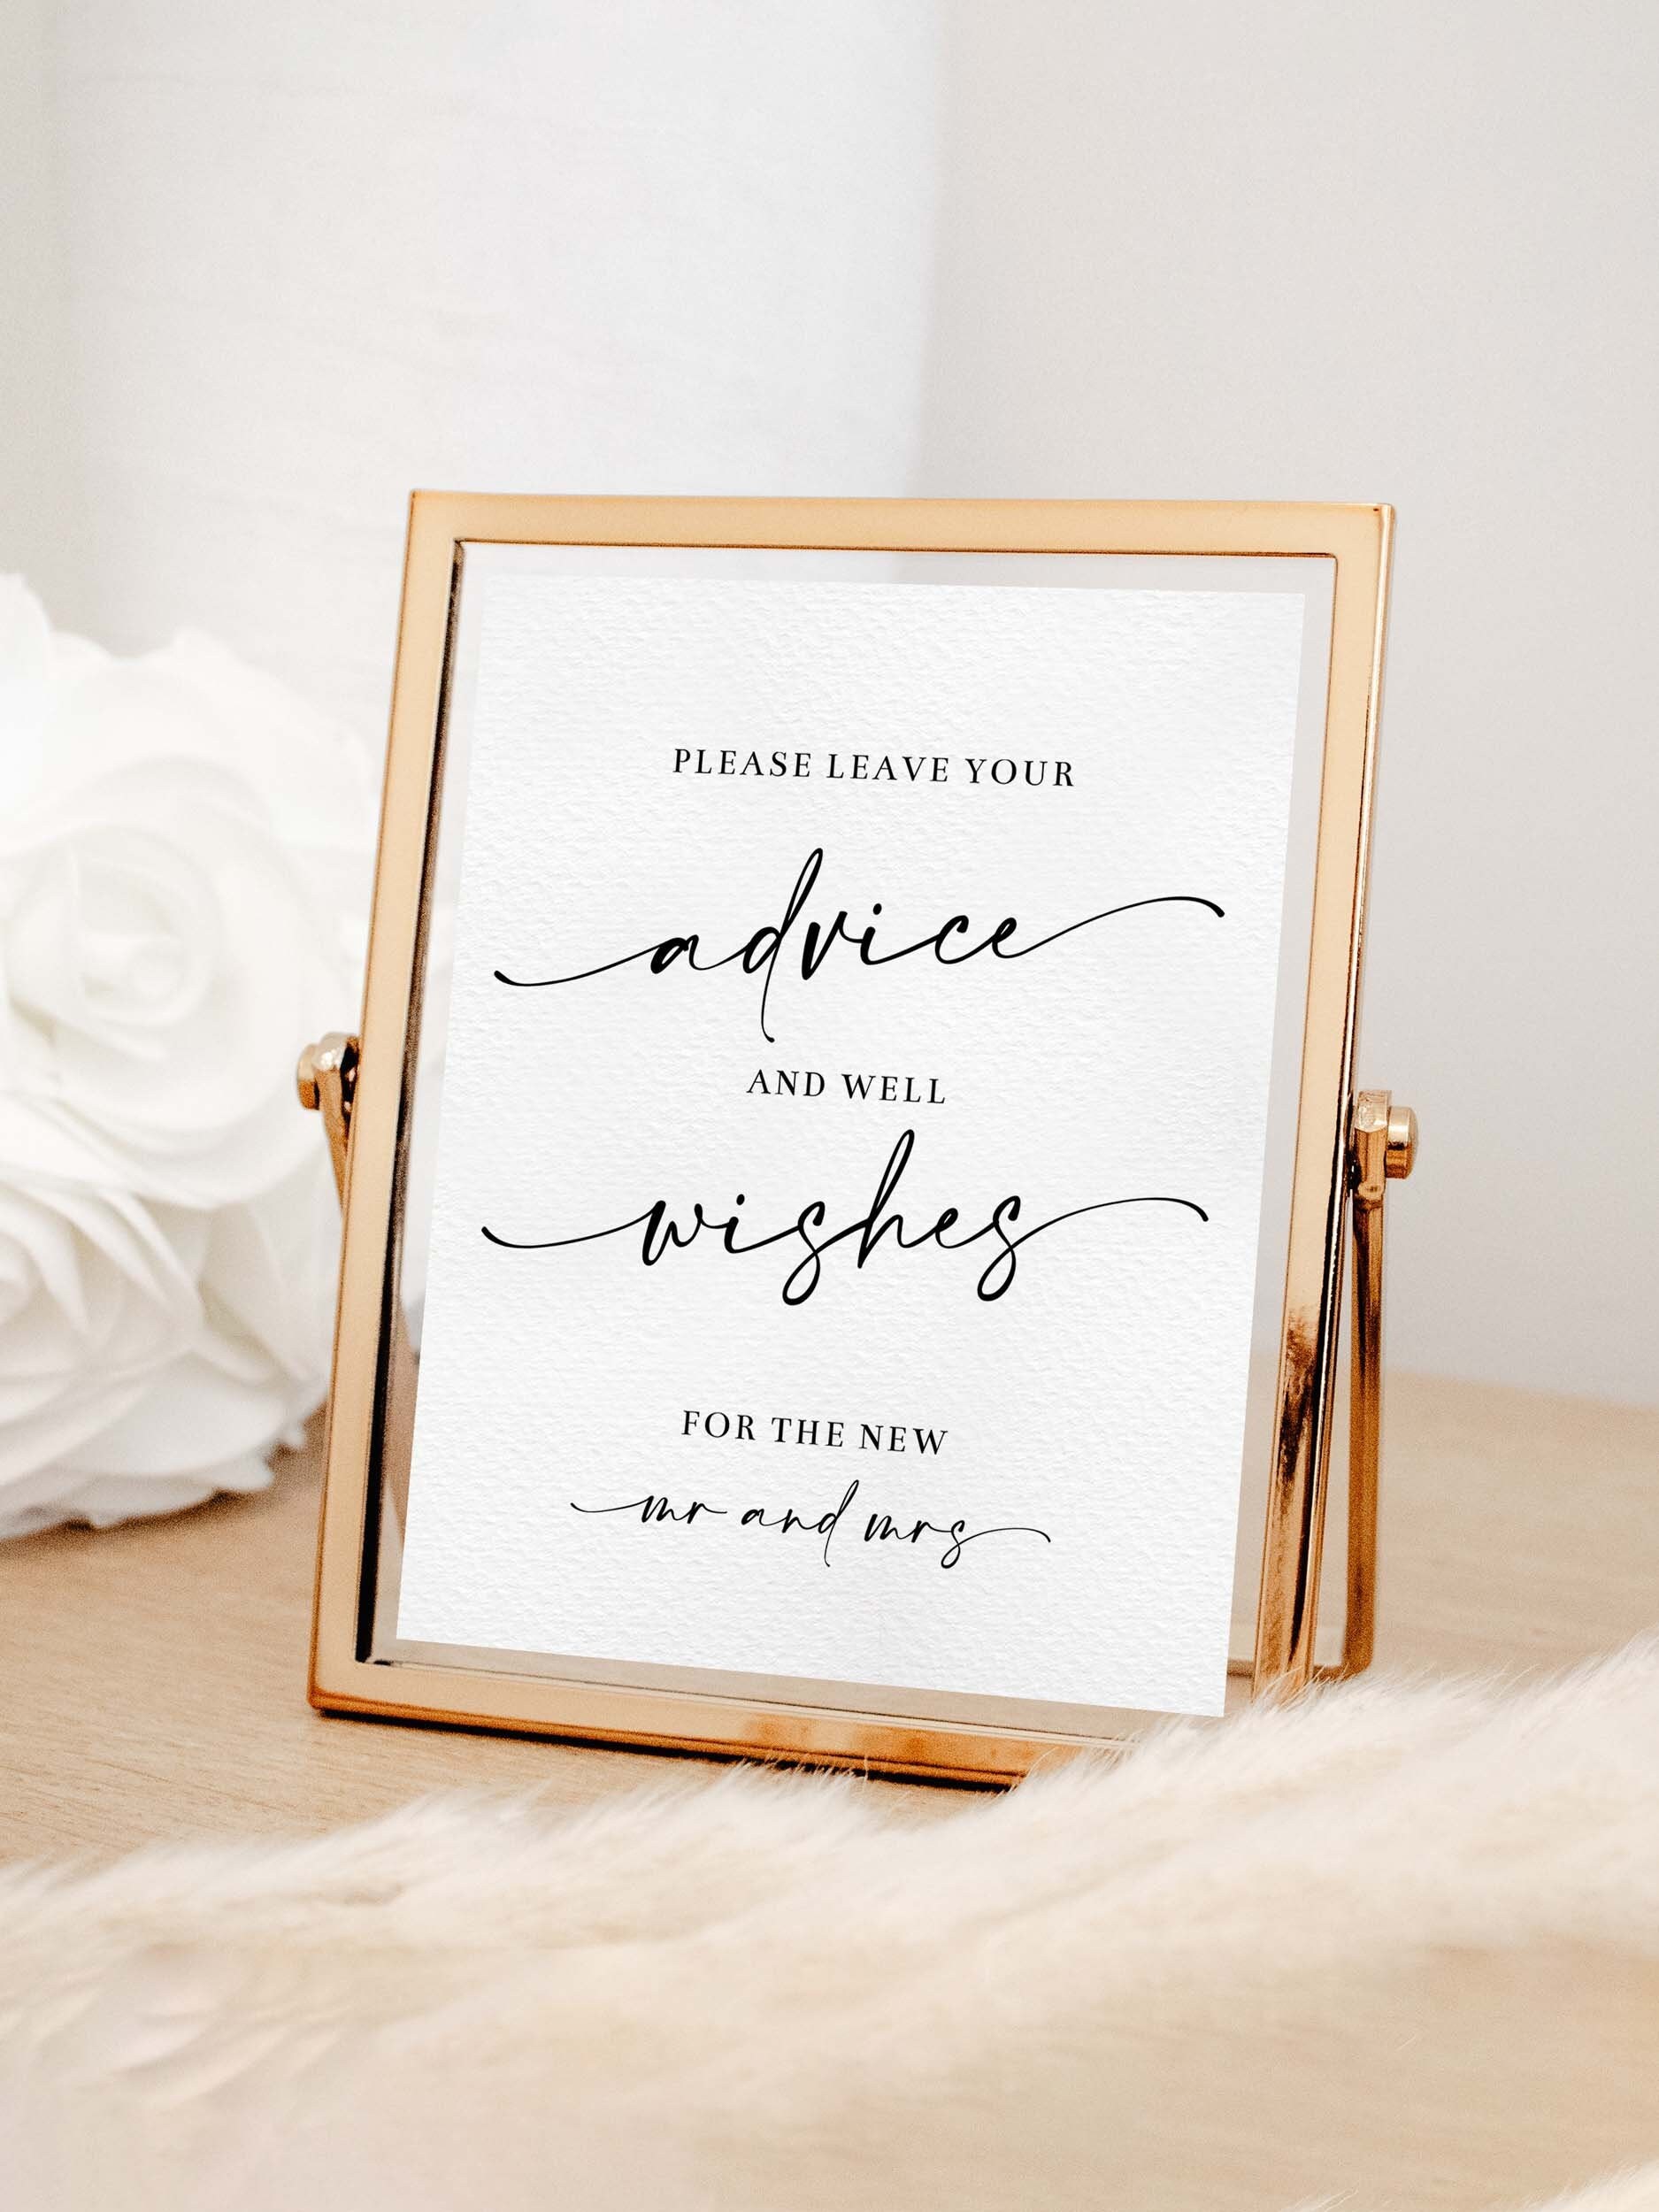 PLEASE LEAVE YOUR
advice
AND WELL
wishes
FOR THE NEW
mr and mrs